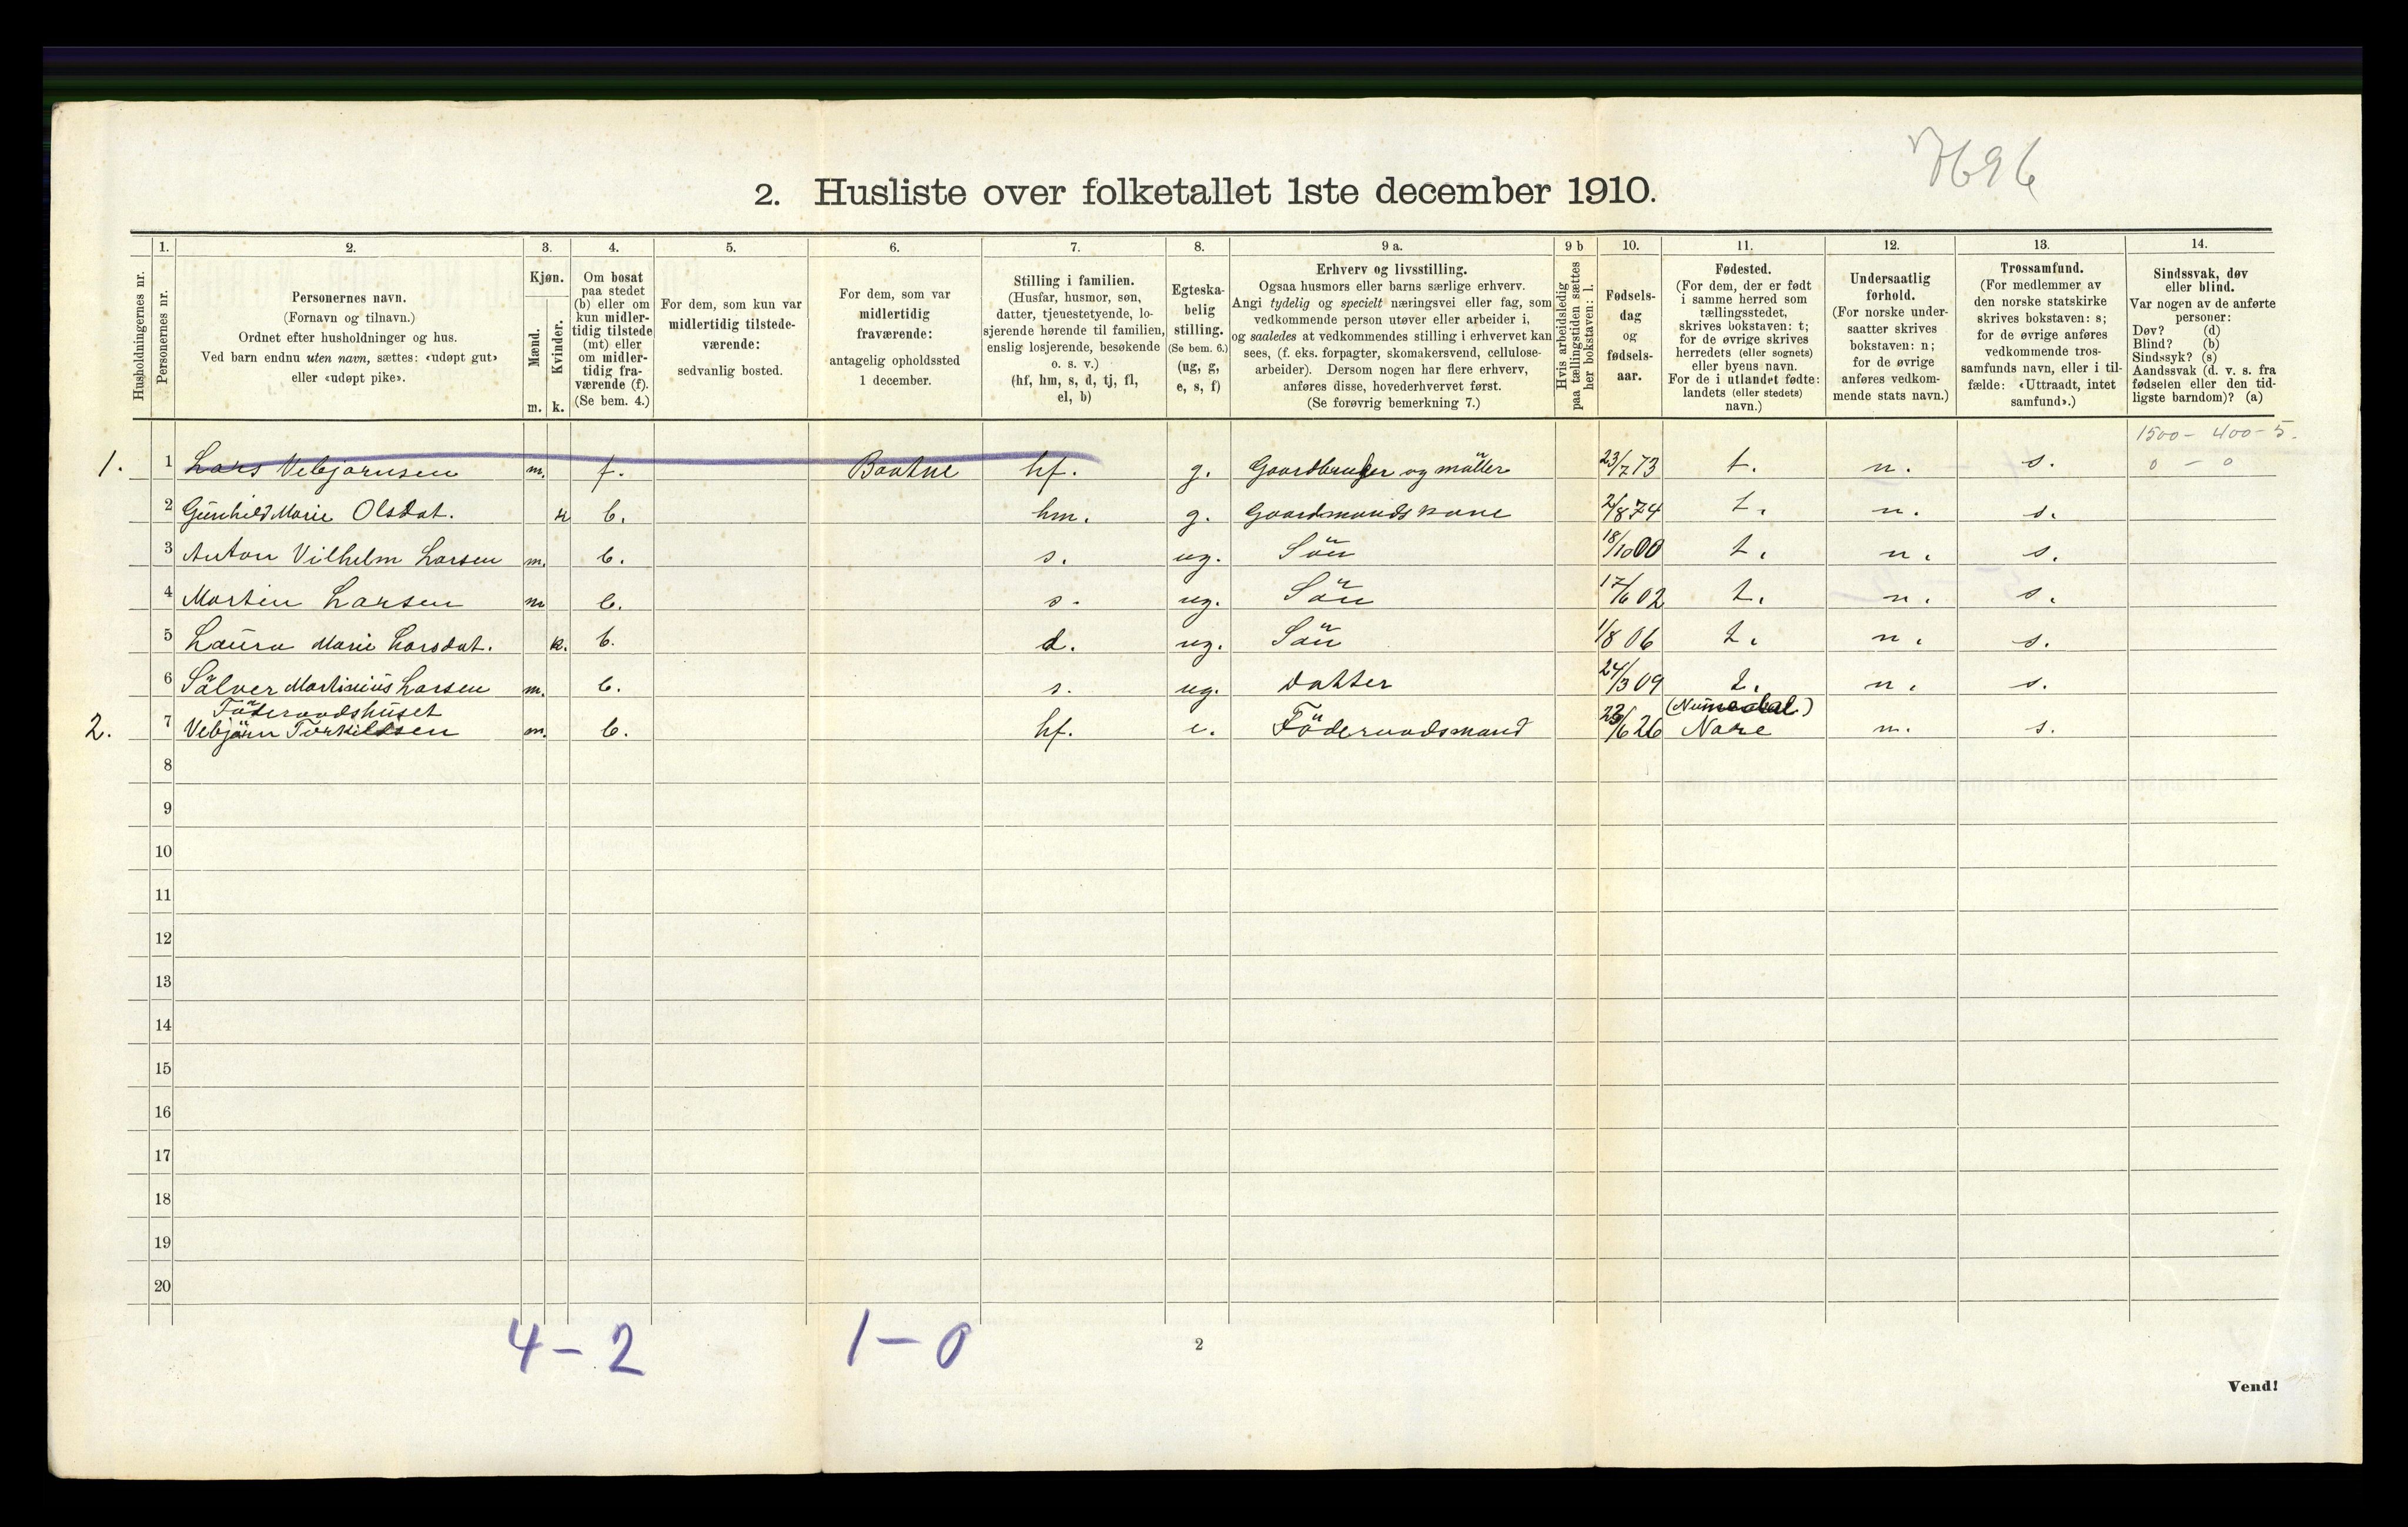 7696
2. Husliste over folketallet 1ste december 1910.
1. 2. 3. 4. 5. 6. 7. 8. 9 a. 9 b 10. 11. 12. 13. 14.
Husholdningernes nr.
Personernes nr.
Personernes navn.
(Fornavn og tilnavn.)
Ordnet efter husholdninger og hus.
Ved barn endnu uten navn, sættes: «udøpt gut»
eller «udøpt pike».
Kjøn.
Mænd.
Kvinder.
m. k.
Om bosat
paa stedet
(b) eller om
kun midler-
tidig tilstede
(mt) eller
om midler-
tidig fra-
værende (f).
(Se bem. 4.)
For dem, som kun var
midlertidig tilstede-
værende:
sedvanlig bosted.
For dem, som var
midlertidig
fraværende:
antagelig opholdssted
1 december.
Stilling i familien.
(Husfar, husmor, søn,
datter, tjenestetyende, lo-
sjerende hørende til familien,
enslig losjerende, besøkende
o. s. v.)
(hf, hm, s, d, tj, fl,
el, b)
Egteska-
belig
stilling.
(Se bem. 6.)
(ug, g,
e, s, f)
Erhverv og livsstilling.
Ogsaa husmors eller barns særlige erhverv.
Angi tydelig og specielt næringsvei eller fag, som
vedkommende person utøver eller arbeider i,
og saaledes at vedkommendes stilling i erhvervet kan
sees, (f. eks. forpagter, skomakersvend, cellulose-
arbeider). Dersom nogen har flere erhverv,
anføres disse, hovederhvervet først.
(Se forøvrig bemerkning 7.)
Hvis arbeidsledig
paa tællingstiden sættes
her bokstaven: l.
Fødsels-
dag
og
fødsels-
aar.
Fødested.
(For dem, der er født
i samme herred som
tællingsstedet,
skrives bokstaven: t;
for de øvrige skrives
herredets (eller sognets)
eller byens navn.
For de i utlandet fødte:
landets (eller stedets)
navn.)
Undersaatlig
forhold.
(For norske under-
saatter skrives
bokstaven: n;
for de øvrige
anføres vedkom-
mende stats navn.)
Trossamfund.
(For medlemmer av
den norske statskirke
skrives bokstaven: s;
for de øvrige anføres
vedkommende tros-
samfunds navn, eller i til-
fælde: «Uttraadt, intet
samfund».)
Sindssvak, døv
eller blind.
Var nogen av de anførte
personer:
Døv? (d)
Blind? (b)
Sindssyk? (s)
Aandssvak (d. v. s. fra
fødselen eller den tid-
ligste barndom)? (a)
1500 - 400 - 5.
1. 1 Lars Vebjørnsen m. f. hf. g. Gaardbruger og müller 23/7 73 t. n. s. 0 - 0
2 Gunhild Marie Olsdat. k b. hm. g. Gaardmands kone 2/8 74 t. n. s.
3 Anton Vilhelm Larsen m. b. s. ug. Sön 18/10 00 t. n. s.
4 Martin Larsen m b. s. ug. Sön 17/6 02 t. n. s.
5 Laura Marie Larsdat. k. b. d. ug. Sön 1/8 06 t. n. s.
6 Sölver Martinius Larsen m. b. s. ug. Datter 24/3 09 t. n. s.
Föderaadshuset (Numedal)
2. 7 Vebjörn Torkildsen m. b. hf. e. Föderaadsmand /6 26 Nore n. s.
8
9
10
11
12
13
14
15
16
17
18
19
20
4 - 2 1 - 0
2
Vend!